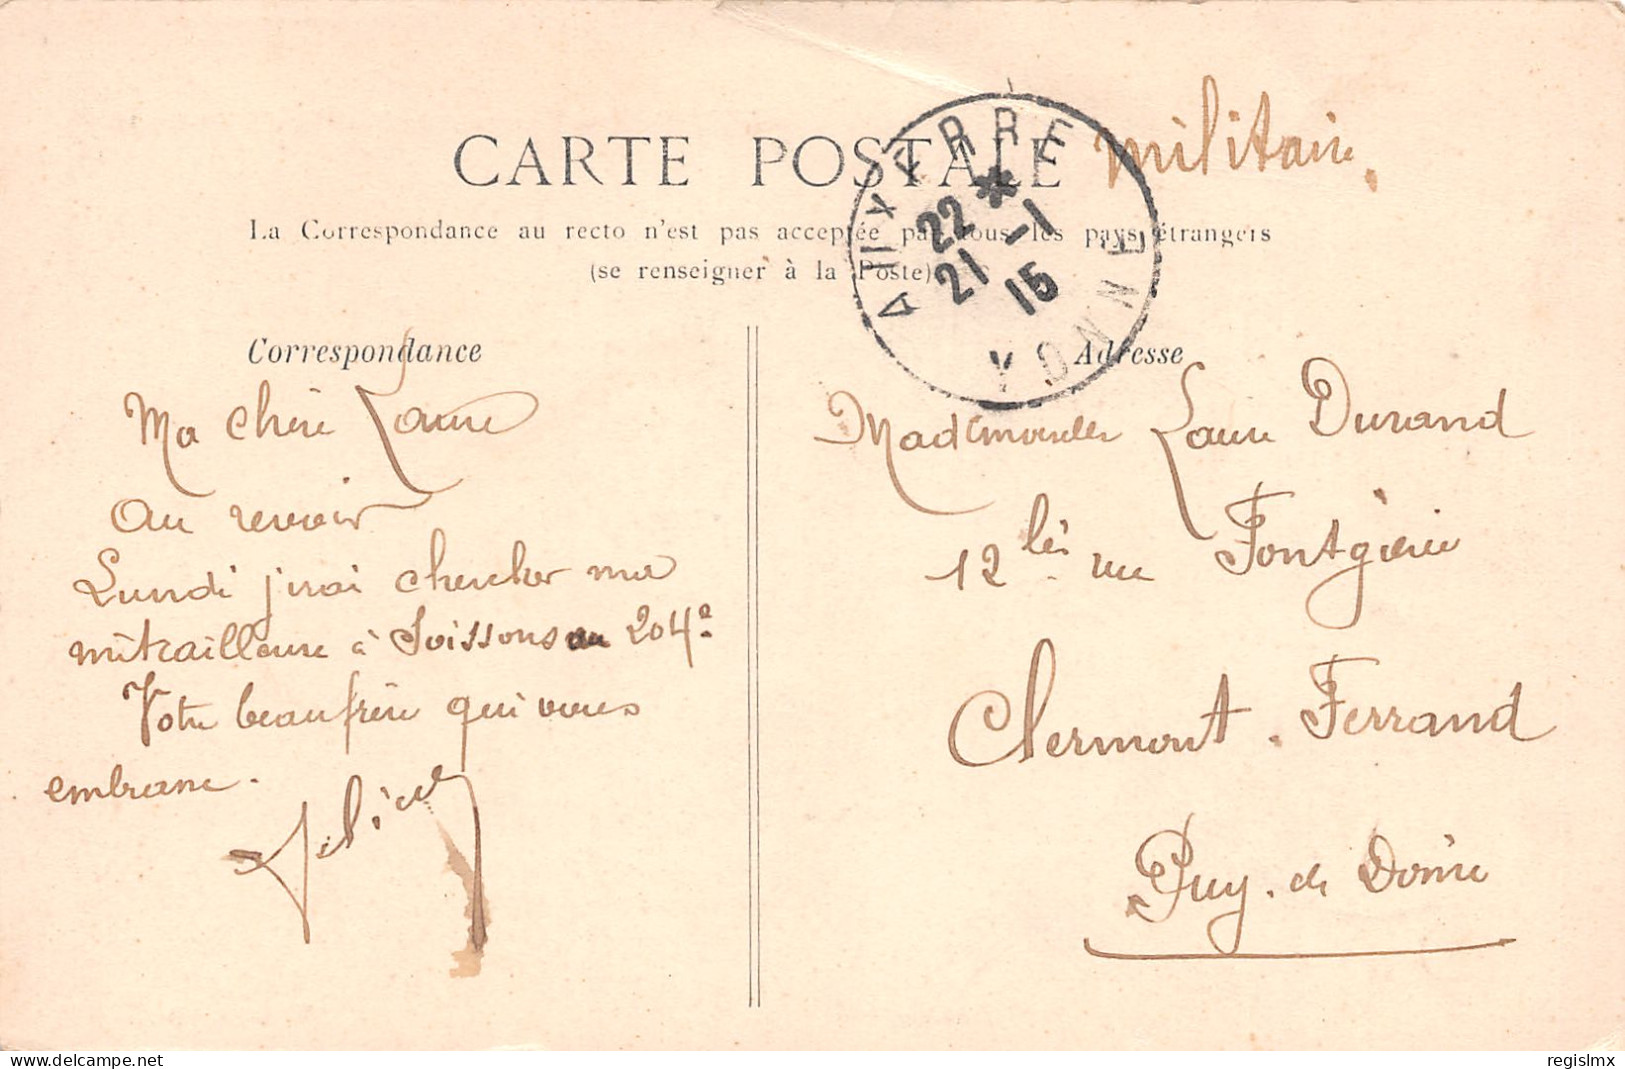 militaire.
CARTE POSTALE
La Correspondance au recto n'est pas acceptée par tous les pays étrangers
(se renseigner à la Poste)
AUXERRE
22 *
21 -1
15
YONNE
Correspondance
Ma chère Laure
Au revoir
Lundi j'irai chercher ma
mitrailleuse à Soissons au 204e
Votre beaufrère qui vous
embrasse.
Adresse
Mademoiselle Laure Durand
12 bis rue Fontgiève
Clermont-Ferrand
Puy. de Dôme
delcampe.net
regislmx